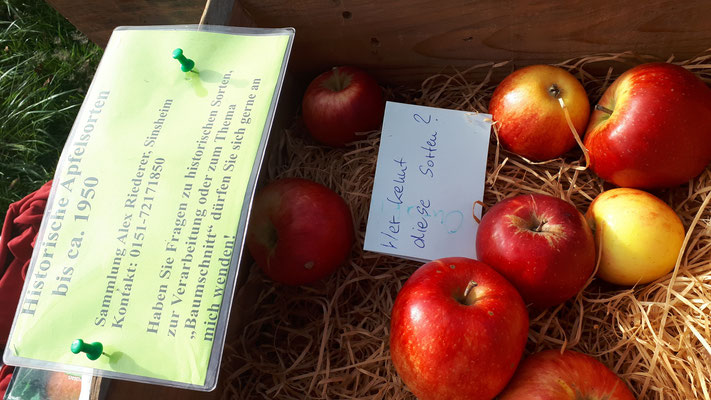 Historische Apfelsorten
bis ca. 1950
Sammlung Alex Riederer, Sinsheim
Kontakt: 0151-72171850
Haben Sie Fragen zu historischen Sorten,
zur Verarbeitung oder zum Thema
„Baumschnitt“ dürfen Sie sich gerne an
mich wenden!
Wer kennt
diese Sorten?